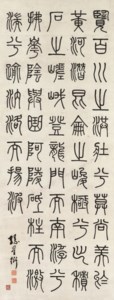 覽百川之洪壯兮莫尚美於
黃河潛昆侖之峻極兮出積
石之嵯峨登龍門而南游兮
拂華陰與曲阿陵砥柱而激
湍兮踰洛汭而揚波